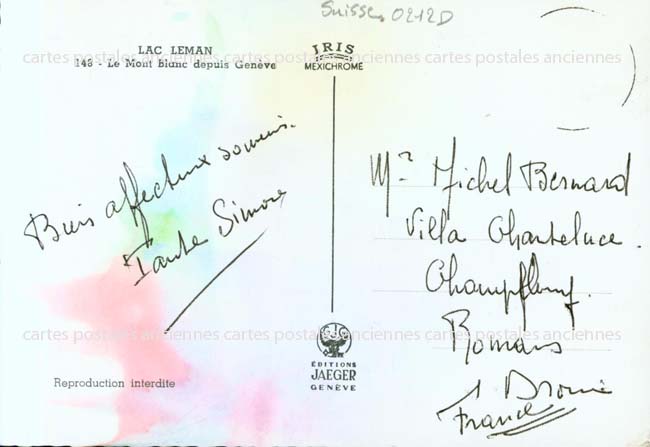 Suisse 0212D
LAC LEMAN
148 - Le Mont Blanc depuis Genève
IRIS
MEXICHROME
cartes postales anciennes cartes postales anciennes cartes postales anciennes
Bien affectueux souvenir.
Tante Simone
Mr Michel Bernard
Villa Chanteluce
Champfleury.
Romans
Drome
France
cartes postales anciennes cartes postales anciennes cartes postales anciennes
EJG
ÉDITIONS
JAEGER
GENÈVE
Reproduction interdite